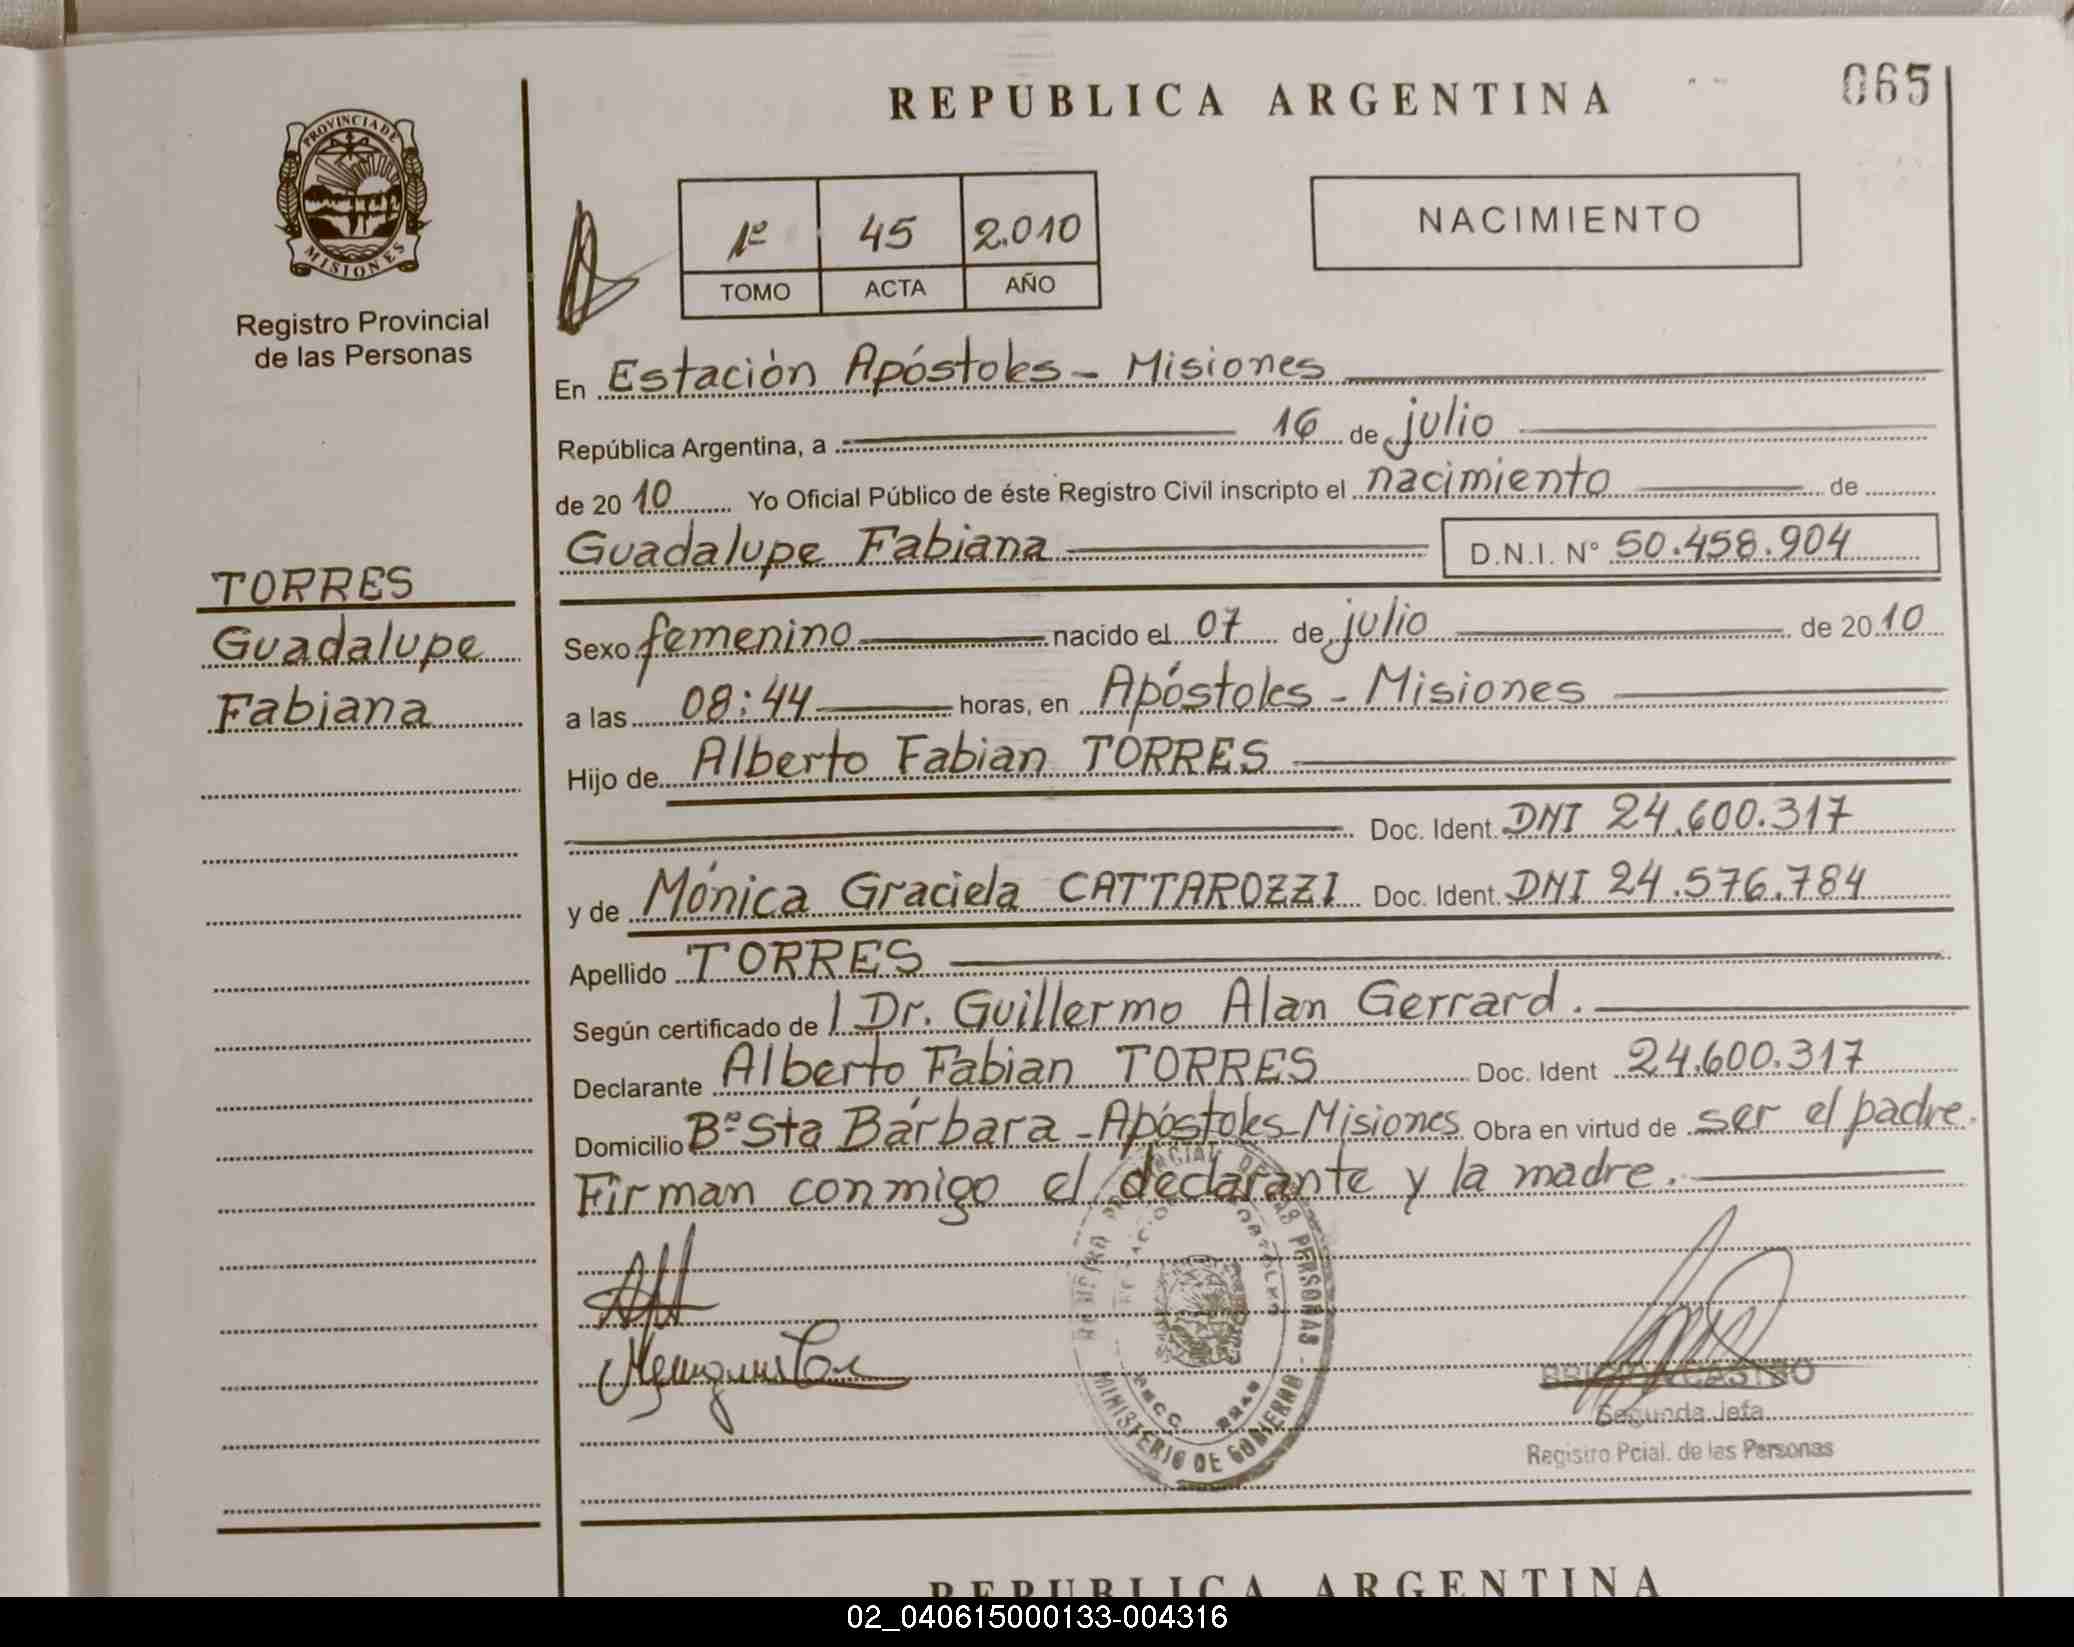 REPUBLICA ARGENTINA
065
PROVINCIA DE
MISIONES
Registro Provincial
de las Personas
1º 45 2.010
TOMO ACTA AÑO
NACIMIENTO
En Estación Apóstoles - Misiones
República Argentina, a 16 de julio
de 20 10 Yo Oficial Público de éste Registro Civil inscripto el nacimiento de
Guadalupe Fabiana D.N.I. Nº 50.458.904
TORRES
Guadalupe
Fabiana
Sexo femenino nacido el 07 de julio de 20 10
a las 08:44 horas, en Apóstoles - Misiones
Hijo de Alberto Fabian TORRES
Doc. Ident. DNI 24.600.317
y de Mónica Graciela CATTAROZZI Doc. Ident. DNI 24.576.784
Apellido TORRES
Según certificado de l Dr. Guillermo Alan Gerrard.
Declarante Alberto Fabian TORRES Doc. Ident 24.600.317
Domicilio Bº Sta Bárbara - Apóstoles - Misiones Obra en virtud de ser el padre.
Firman conmigo el declarante y la madre.
PERSONAS
MINISTERIO DE GOBIERNO
Segunda Jefa
Registro Pcial. de las Personas
REPUBLICA ARGENTINA
02_040615000133-004316